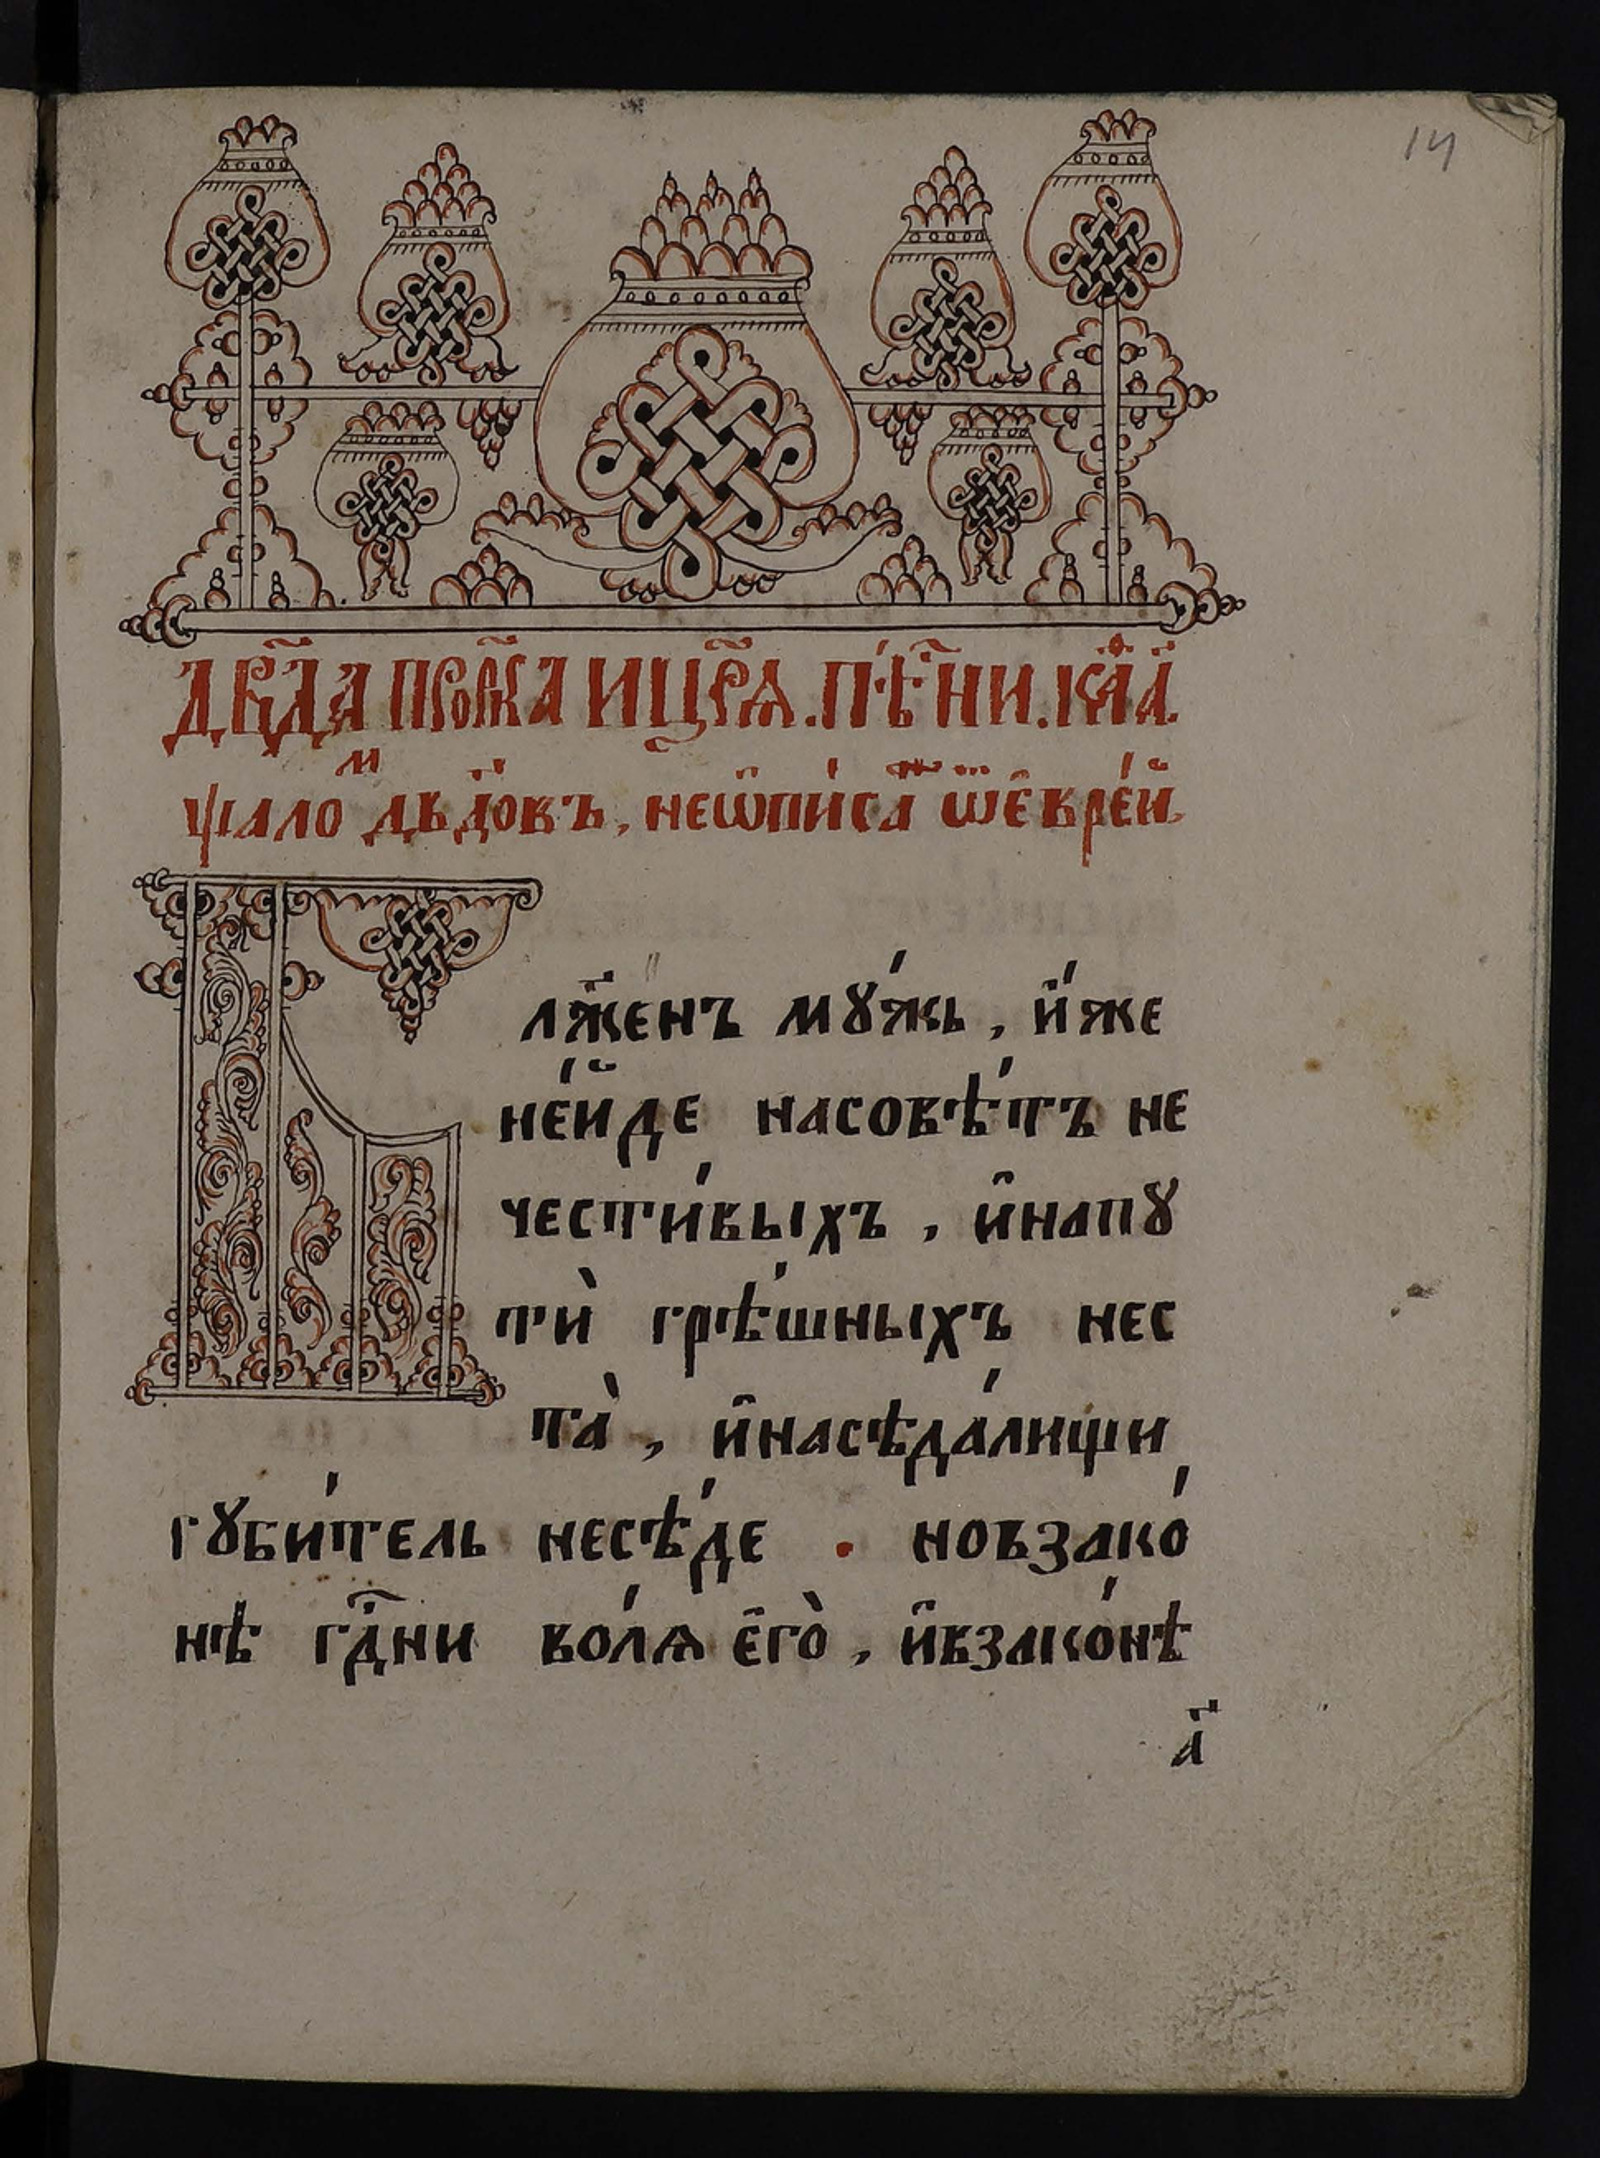 14
Дв҃да прⷪ҇рка и цр҃ѧ. пѣ́сни. каѳⷭ҇ а҃.
ѱало́ⷨ дв҃довъ, неѡпи́саⷩ҇ ѿ є҆вре́й.
Бл҃же́нъ мꙋ́жь, и҆́же
не́йде насовѣ́тъ не
чести́выхъ, и҆напꙋ
тѝ грѣ́шныхъ нес
та̀, и҆насѣда́лищи
гꙋби́тель несѣ́де . новзако́
нѣ гд҇ни во́лѧ є҆го̀, и҆взако́нѣ
а҃